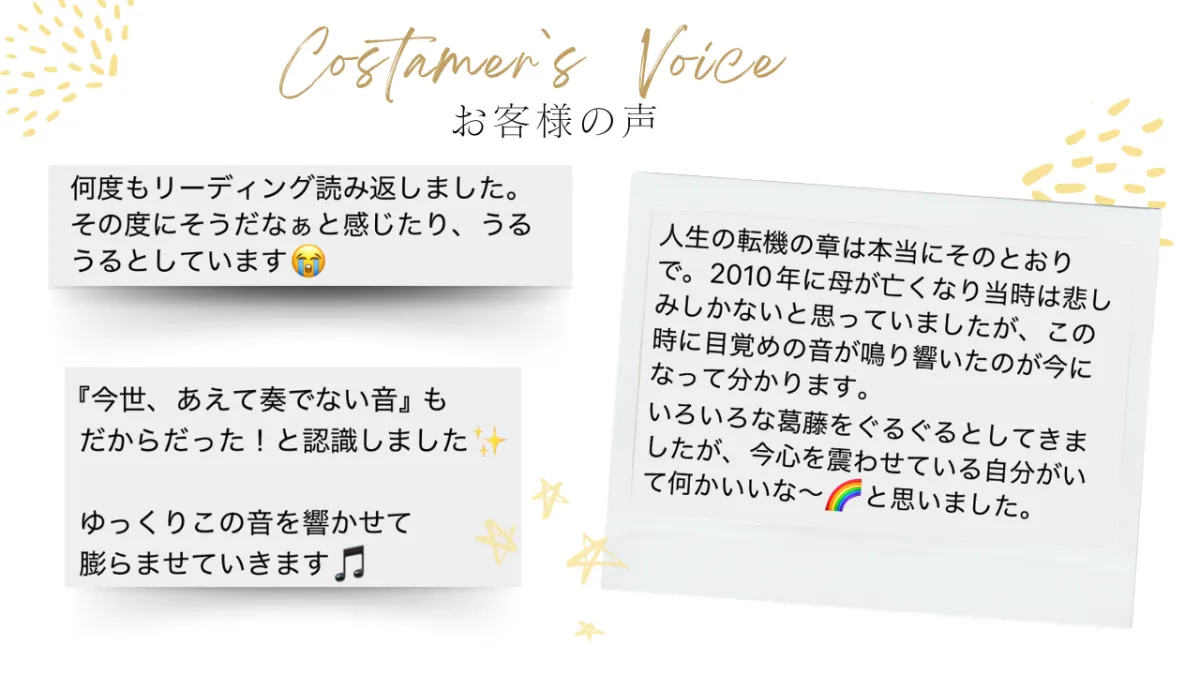 Costamer`s Voice
お客様の声
何度もリーディング読み返しました。
その度にそうだなぁと感じたり、うる
うるとしています😭
『今世、あえて奏でない音』も
だからだった！と認識しました✨
ゆっくりこの音を響かせて
膨らませていきます🎵
人生の転機の章は本当にそのとおり
で。2010年に母が亡くなり当時は悲し
みしかないと思っていましたが、この
時に目覚めの音が鳴り響いたのが今に
なって分かります。
いろいろな葛藤をぐるぐるとしてきま
したが、今心を震わせている自分がい
て何かいいな〜🌈と思いました。